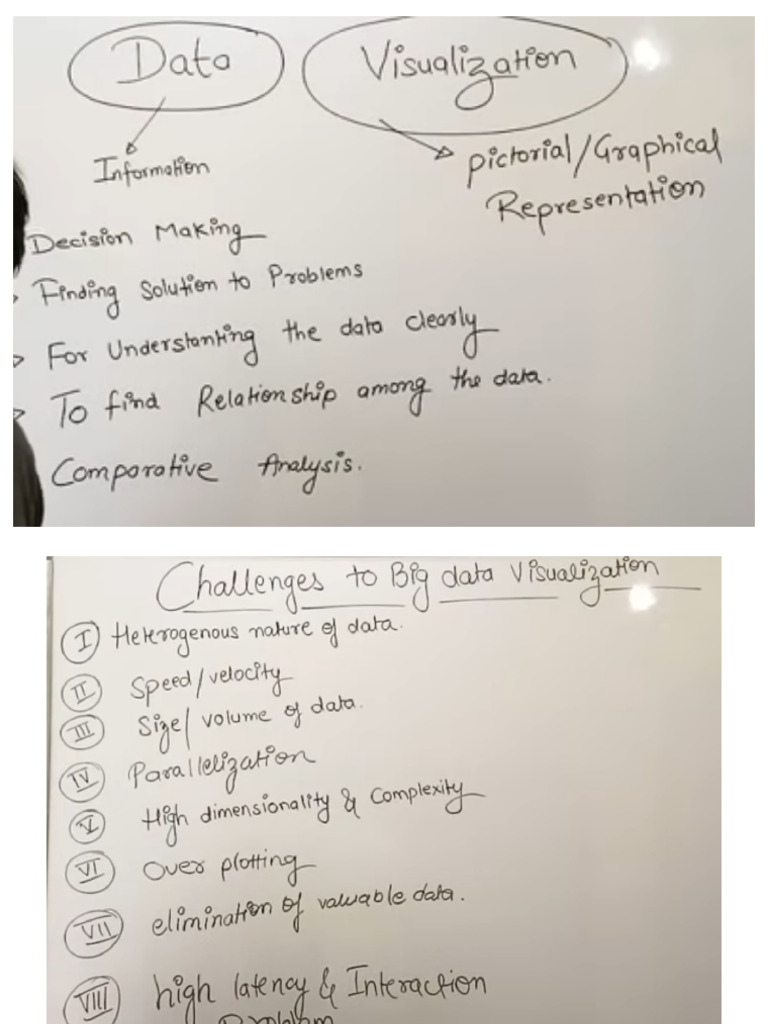 Data Visualization
Information
Pictorial/Graphical
Representation
Decision Making
Finding Solution to Problems
For Understanting the data clearly
To find Relationship among the data.
Comparative Analysis.
Challenges to Big data Visualization
I Heterogenous nature of data.
II Speed/velocity
III Size/volume of data.
IV Parallelization
V High dimensionality & Complexity
VI Over plotting
VII elimination of valuable data.
VIII high latency & Interaction
Problem